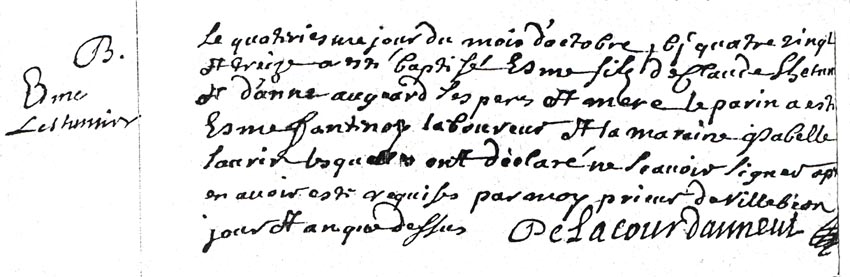 B.
Esme
Lestumier
Le quatriesme jour du mois d'octobre, bj quatre vingt
et treize a esté baptisé Esme filz de Claude Lhetum
et d'anne augeard ses pere et mere le parin a esté
Esme fantinoy laboureur et la maraine isabelle
laurin lesquels ont déclaré ne scavoir signer ap
en avoir esté requises par moy prieur de villebeon
jour et an que dessus De Lacour danneul